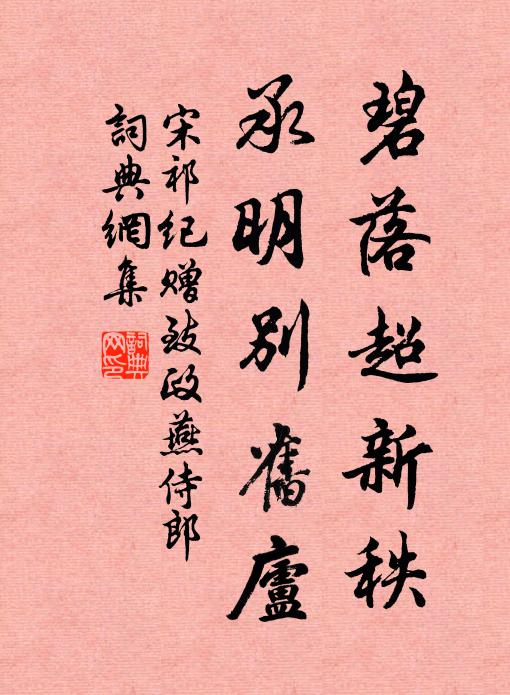 碧落超新秩
承明別舊廬
宋祁紀贈致政燕侍郎
詞典網集
詞典網印